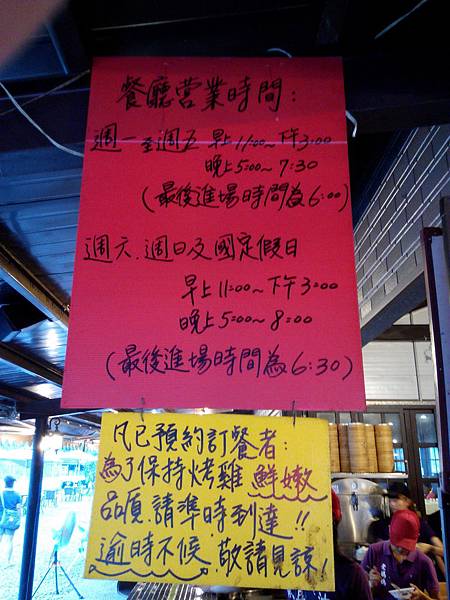 餐廳营業時間：
週一至週五 早上11:00~下午3:00
晚上5:00~7:30
(最後進場時間為6:00)
週六、週日及國定假日
早上11:00~下午3:00
晚上5:00~8:00
(最後進場時間為6:30)
凡已預約訂餐者：
為了保持烤雞鮮嫩
品質、請準時到達!!
逾時不候、敬請見諒!